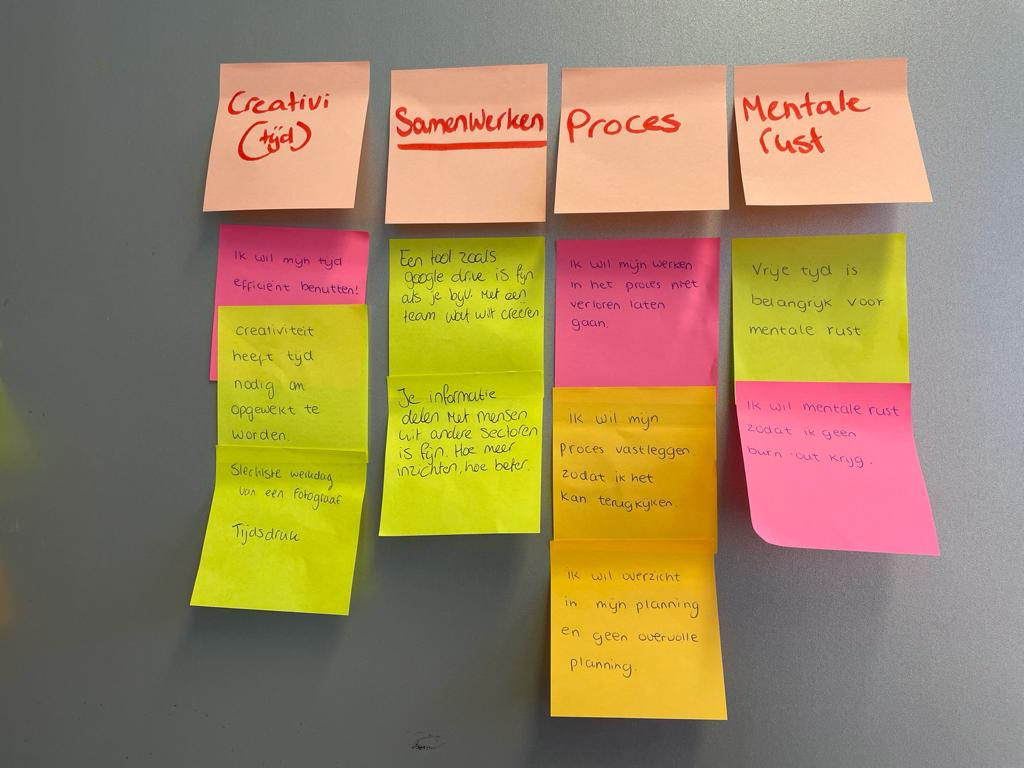 Creativi
(tijd)
Ik wil mijn tijd
efficiënt benutten!
Creativiteit
heeft tijd
nodig om
opgewekt te
worden.
Slechtste werkdag
van een fotograaf
Tijdsdruk
Samenwerken
Een tool zoals
google drive is fijn
als je bijv. met een
team wat wilt creëren.
Je informatie
delen met mensen
uit andere sectoren
is fijn. Hoe meer
inzichten, hoe beter.
Proces
Ik wil mijn werken
in het proces niet
verloren laten
gaan.
Ik wil mijn
proces vastleggen.
zodat ik het
kan terugkijken.
Ik wil overzicht
in mijn planning
en geen overvolle
planning.
Mentale
rust
Vrije tijd is
belangrijk voor
mentale rust
Ik wil mentale rust
zodat ik geen
burn-out krijg.